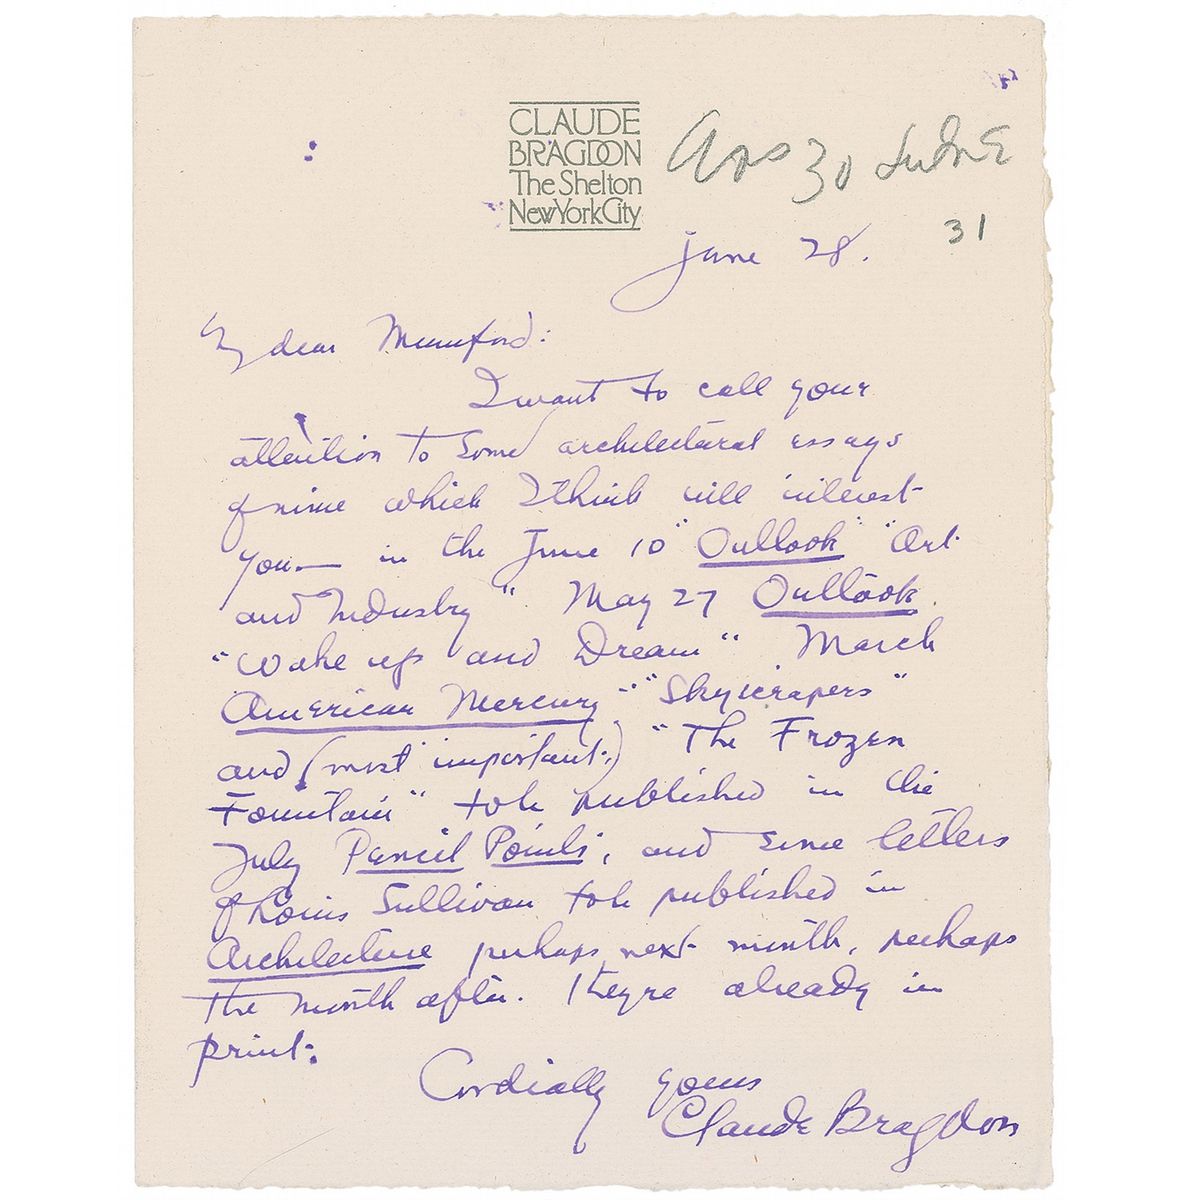 CLAUDE
BRAGDON
The Shelton
New York City
Ans 30
31
June 28.
My dear Mumford:
I want to call your
attention to some architectural essays
of mine which I think will interest
you— in the June 10 "Outlook" "Art
and Industry" May 27 Outlook
"Wake up and Dream" March
American Mercury - "Skyscrapers"
and (most important:) "The Frozen
Fountain" to be published in the
July Pencil Points, and some letters
of Louis Sullivan to be published in
Architecture perhaps next month, perhaps
the month after. They're already in
print.
Cordially yours
Claude Bragdon